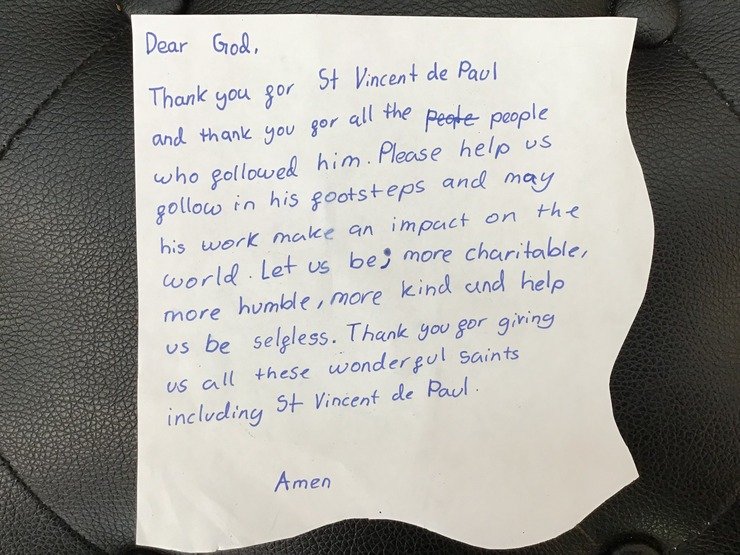 Dear God,
Thank you for St Vincent de Paul
and thank you for all the people
who followed him. Please help us
follow in his footsteps and may
his work make an impact on the
world. Let us be; more charitable,
more humble, more kind and help
us be selfless. Thank you for giving
us all these wonderful saints
including St Vincent de Paul.
Amen